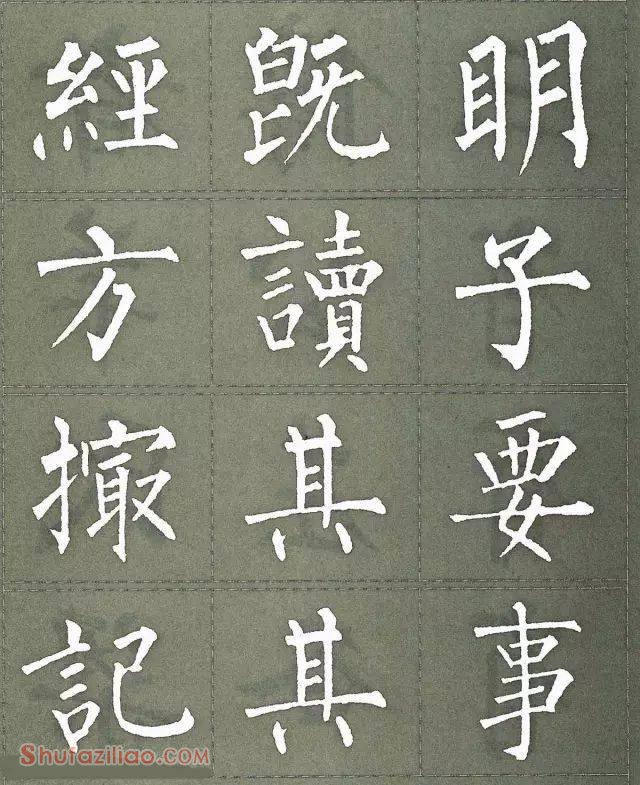 經既明
方讀子
撮其要
記其事
Shufaziliao.com